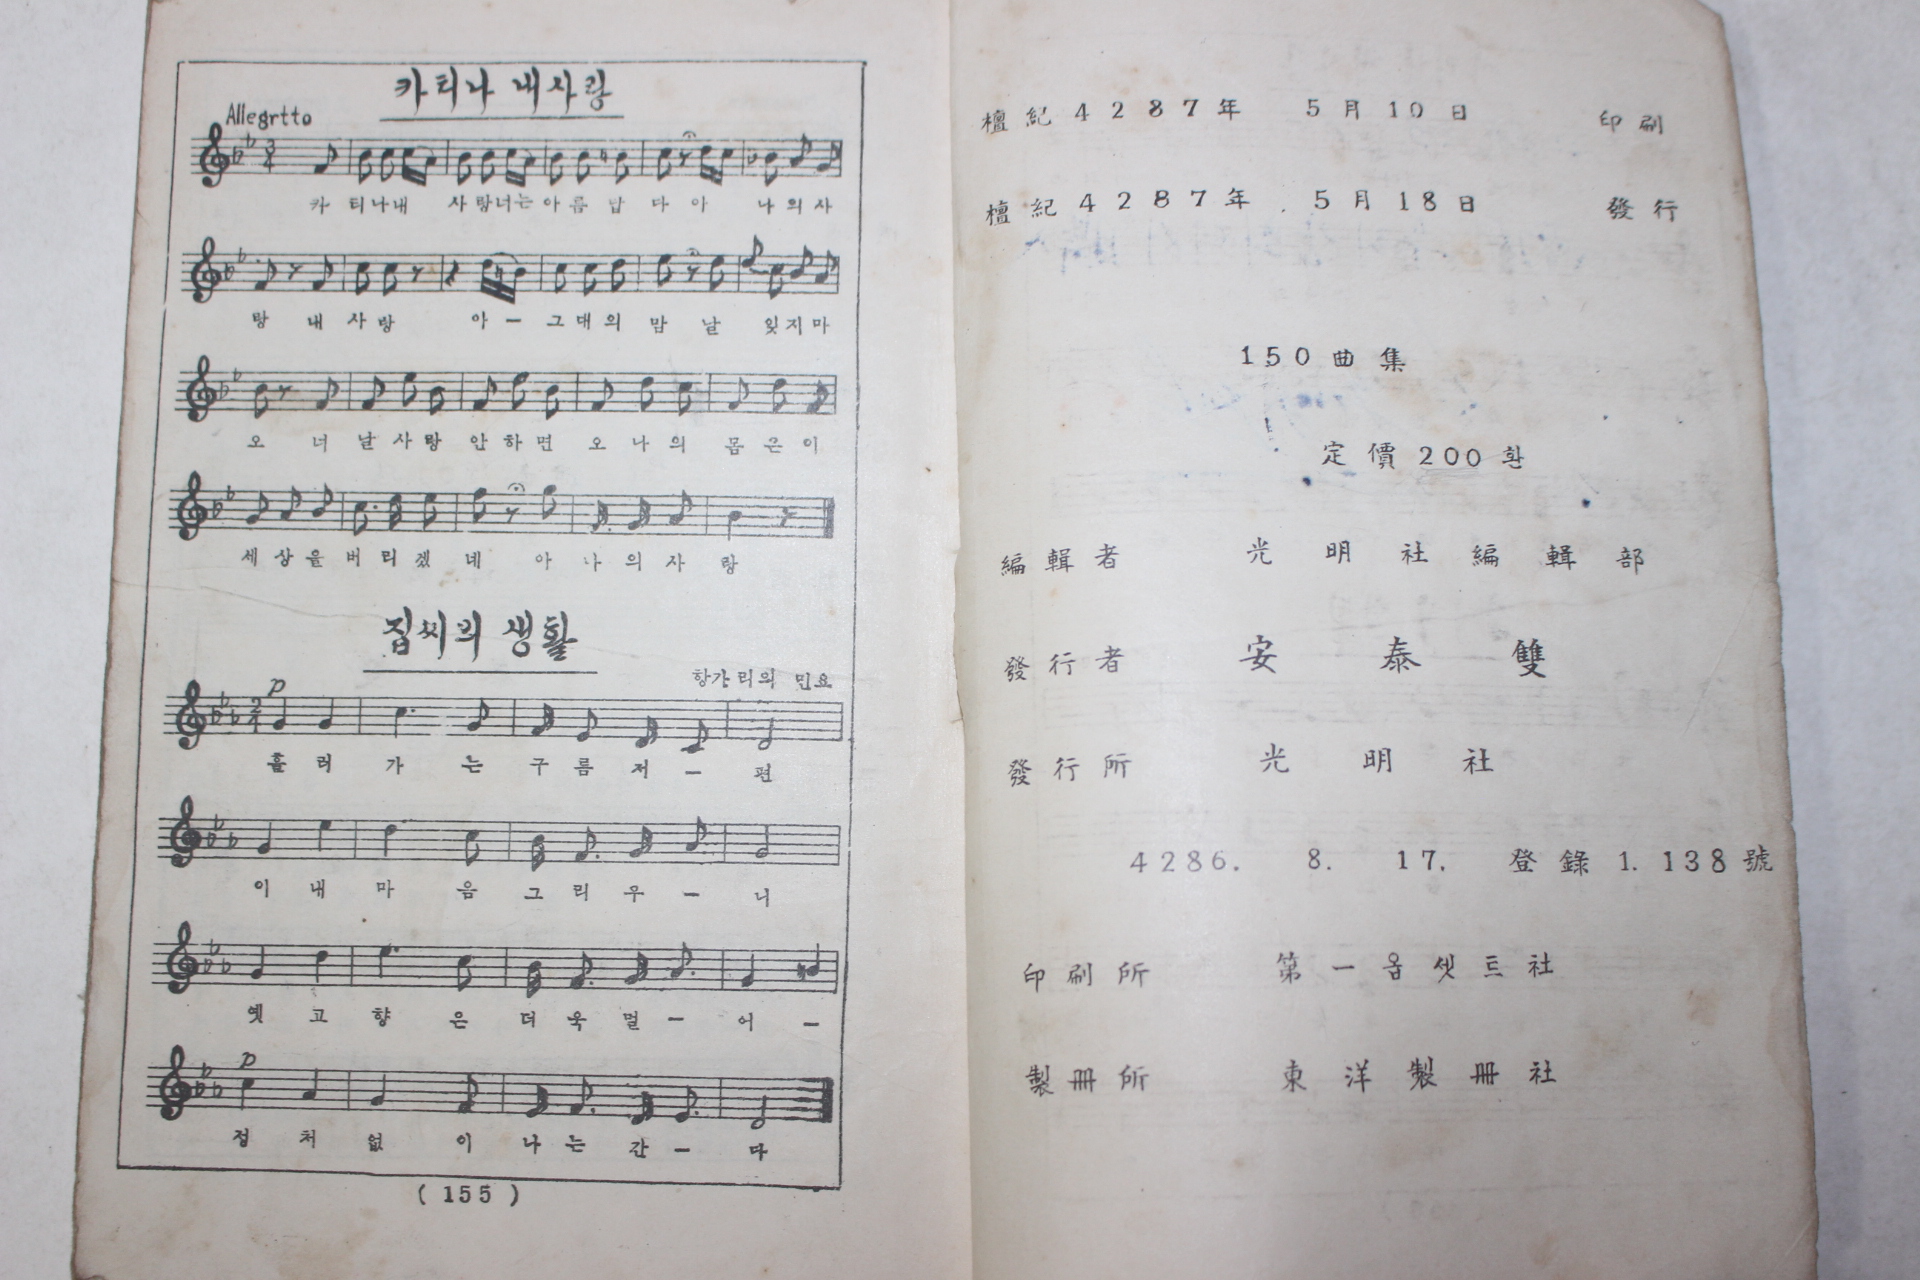 카티나 내사랑
Allegrtto
카 티나내 사랑너는아름 답 다 아 나의사
랑 내 사랑 아 ー 그대의 맘 날 잊지마
오 너 날사랑 안하면 오 나의 몸은이
세상을버리겠 네 아 나의사 랑
집씨의 생활
항가리의 민요
p
흘 러 가 는 구 름 저 ー 편
이 내 마 음 그 리 우 ー 니
옛 고 향 은 더 욱 멀 ー 어 ー
p
정 처 없 이 나 는 간 ー 다
( 155 )
檀紀4287年 5月10日 印刷
檀紀4287年 5月18日 發行
150曲集
定價200환
編輯者 光明社編輯部
發行者 安泰雙
發行所 光明社
4286. 8. 17. 登錄1.138號
印刷所 第一옵셋트社
製冊所 東洋製冊社